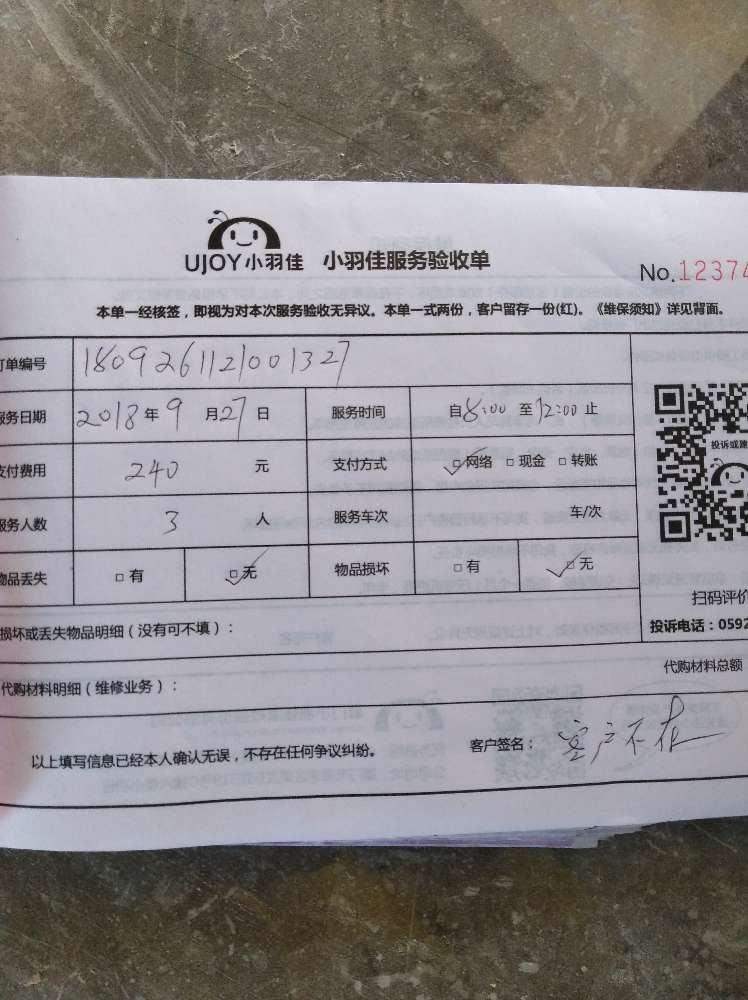 UJOY小羽佳 小羽佳服务验收单
No.12374
本单一经核签，即视为对本次服务验收无异议。本单一式两份，客户留存一份(红)。《维保须知》详见背面。
订单编号 1809261121001327
服务日期 2018年9月27日 服务时间 自8:00至12:00止
支付费用 240 元 支付方式 ☑网络 □现金 □转账
服务人数 3 人 服务车次 车/次
物品丢失 □有 ☑无 物品损坏 □有 ☑无
投诉或建
扫码评价
损坏或丢失物品明细（没有可不填）：
投诉电话：0592
代购材料明细（维修业务）：
代购材料总额
以上填写信息已经本人确认无误，不存在任何争议纠纷。 客户签名：客户不在